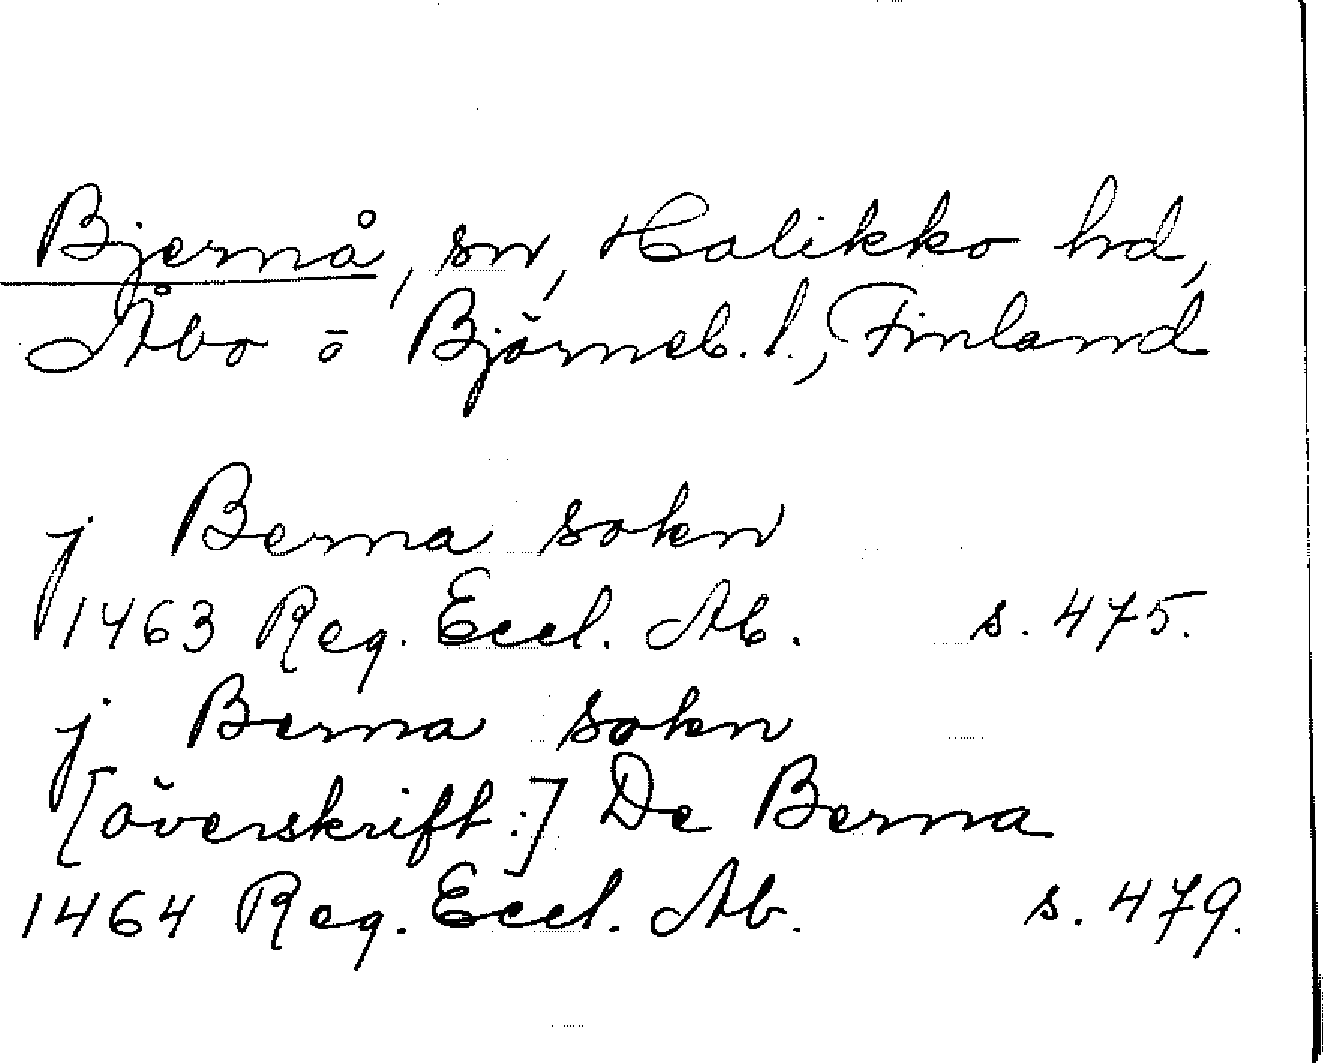 Bjernå, sn, Halikko hd,
Åbo o Björneb. l., Finland
j Berna sokn
1463 Reg. Eccl. Ab. s. 475.
j Berna sokn
[överskrift:] De Berna
1464 Reg. Eccl. Ab. s. 479.